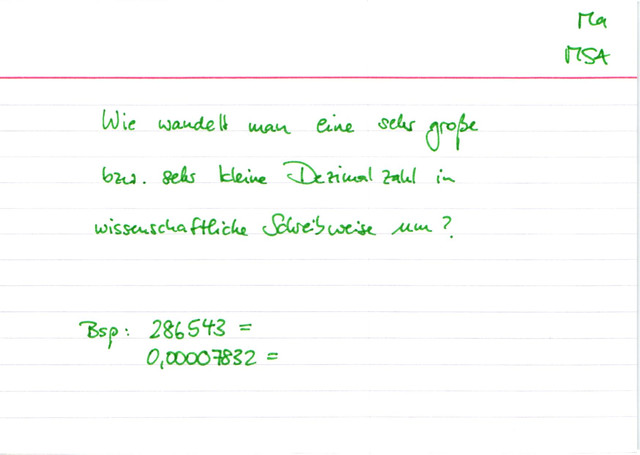 Ma
MSA
Wie wandelt man eine sehr große
bzw. sehr kleine Dezimalzahl in
wissenschaftliche Schreibweise um?
Bsp: 286543 =
0,00007832 =